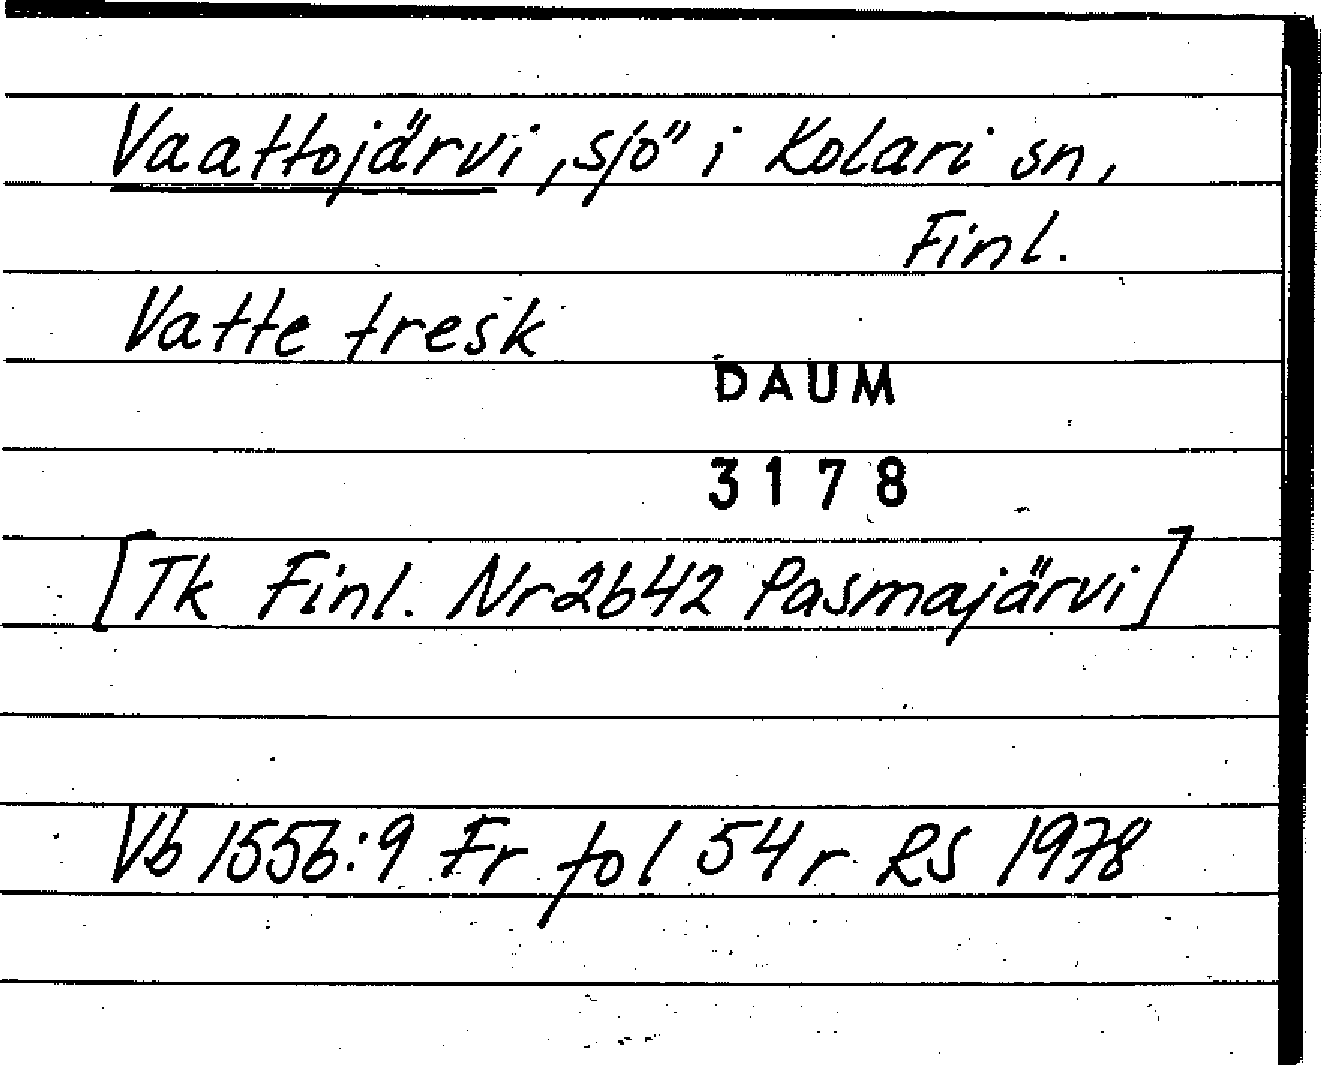 Vaattojärvi, sjö i Kolari sn,
Finl.
Vatte tresk
DAUM
3178
[Tk Finl. Nr 2642 Pasmajärvi]
Vb 1556:9 Fr fol 54 r RS 1978